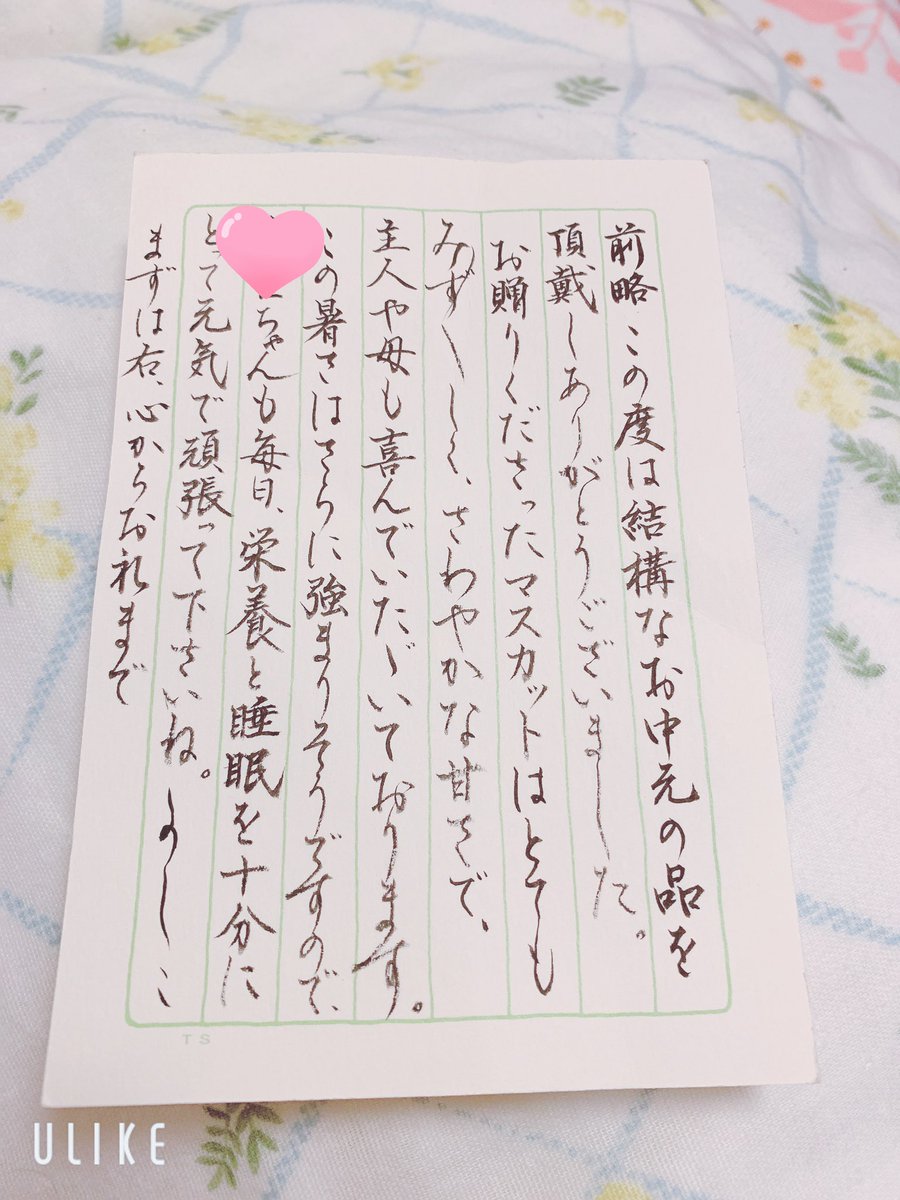 前略 この度は結構なお中元の品を
頂戴しありがとうございました。
お贈りくださったマスカットはとても
みず〱しく、さわやかな甘さで、
主人や母も喜んでいたゞいております。
この暑さはさらに強まりそうですので、
ちゃんも毎日、栄養と睡眠を十分に
とって元気で頑張って下さいね。
まずは右、心からお礼まで
TS
ULIKE